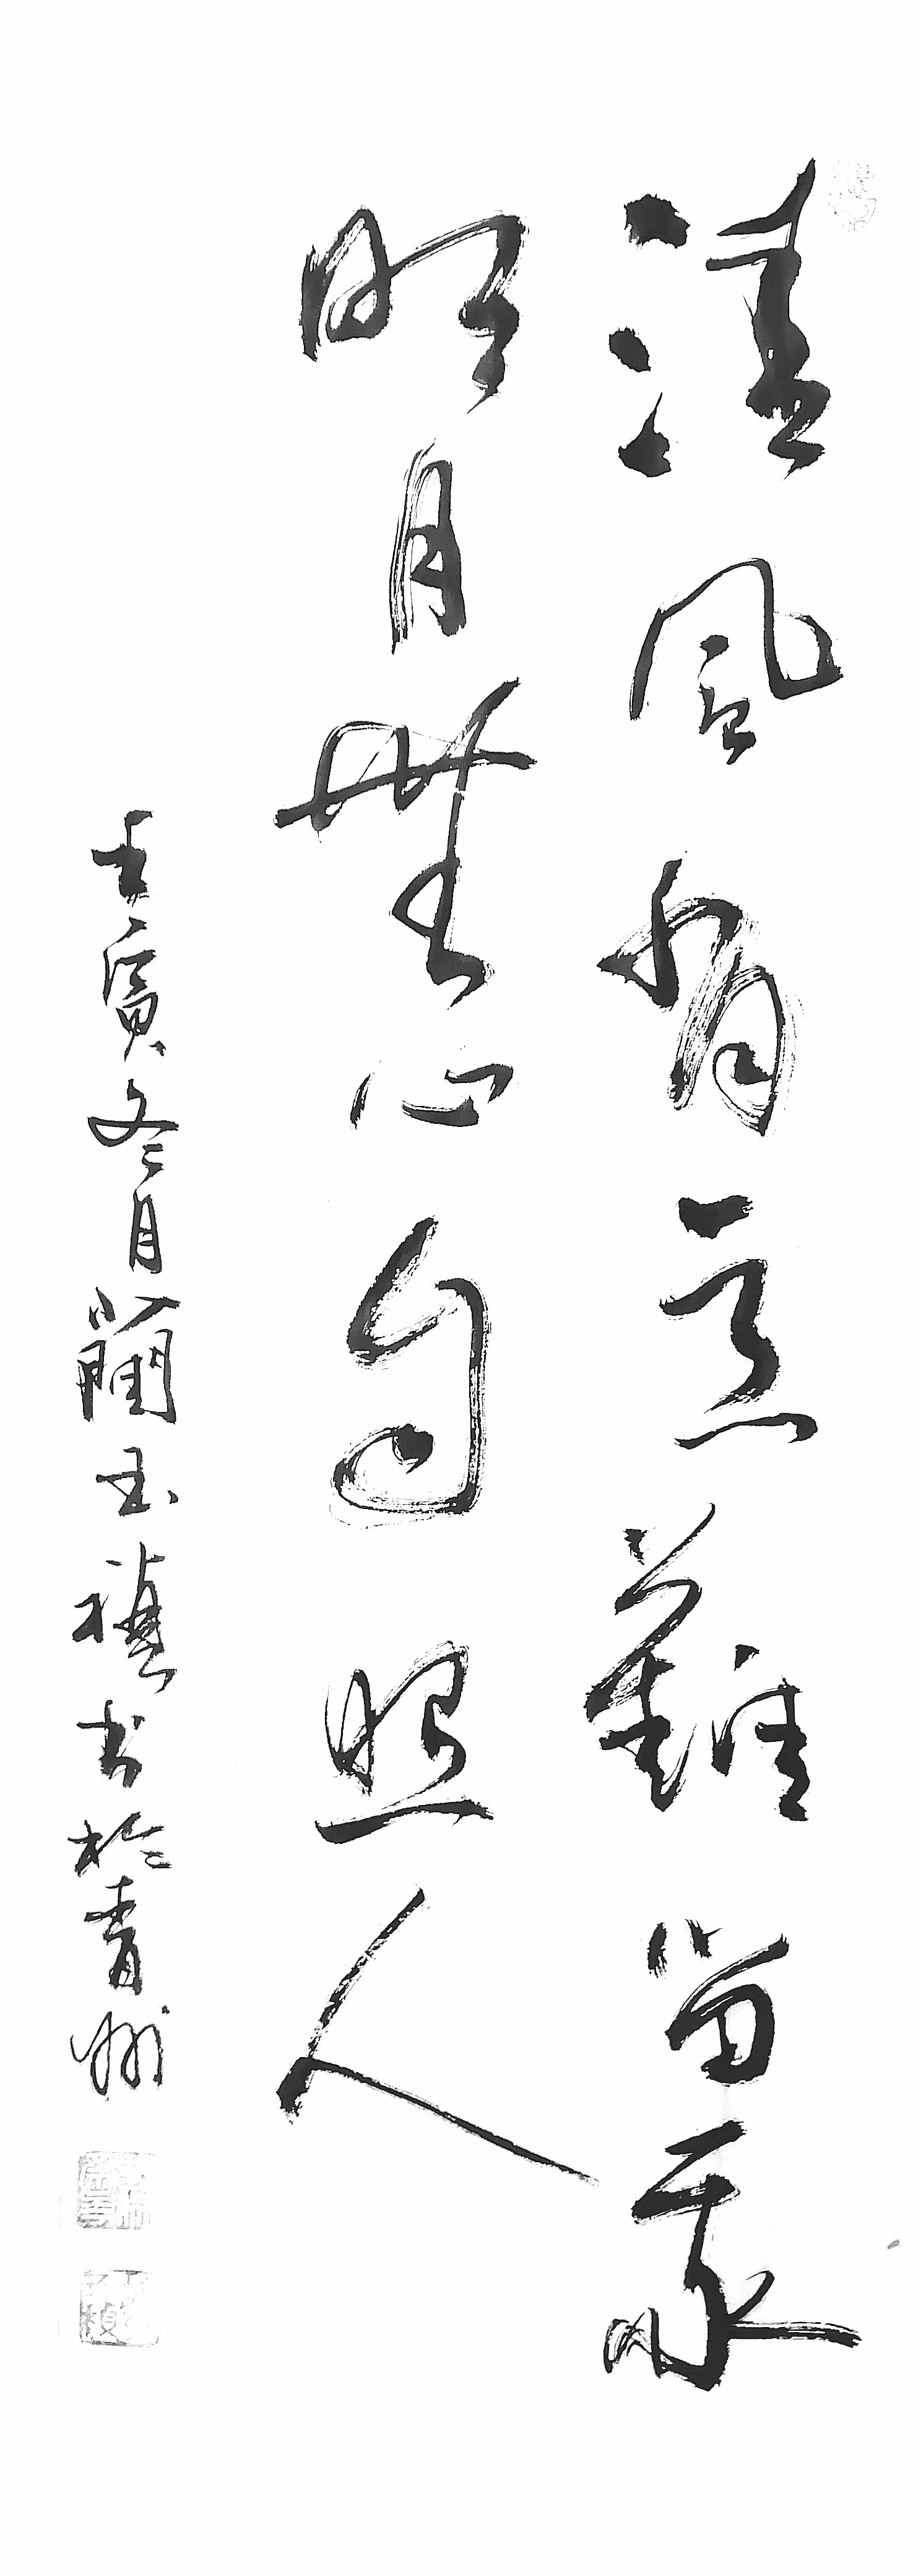 清風有意難留我
明月無心自照人
壬寅冬月蘭玉禧書於青州